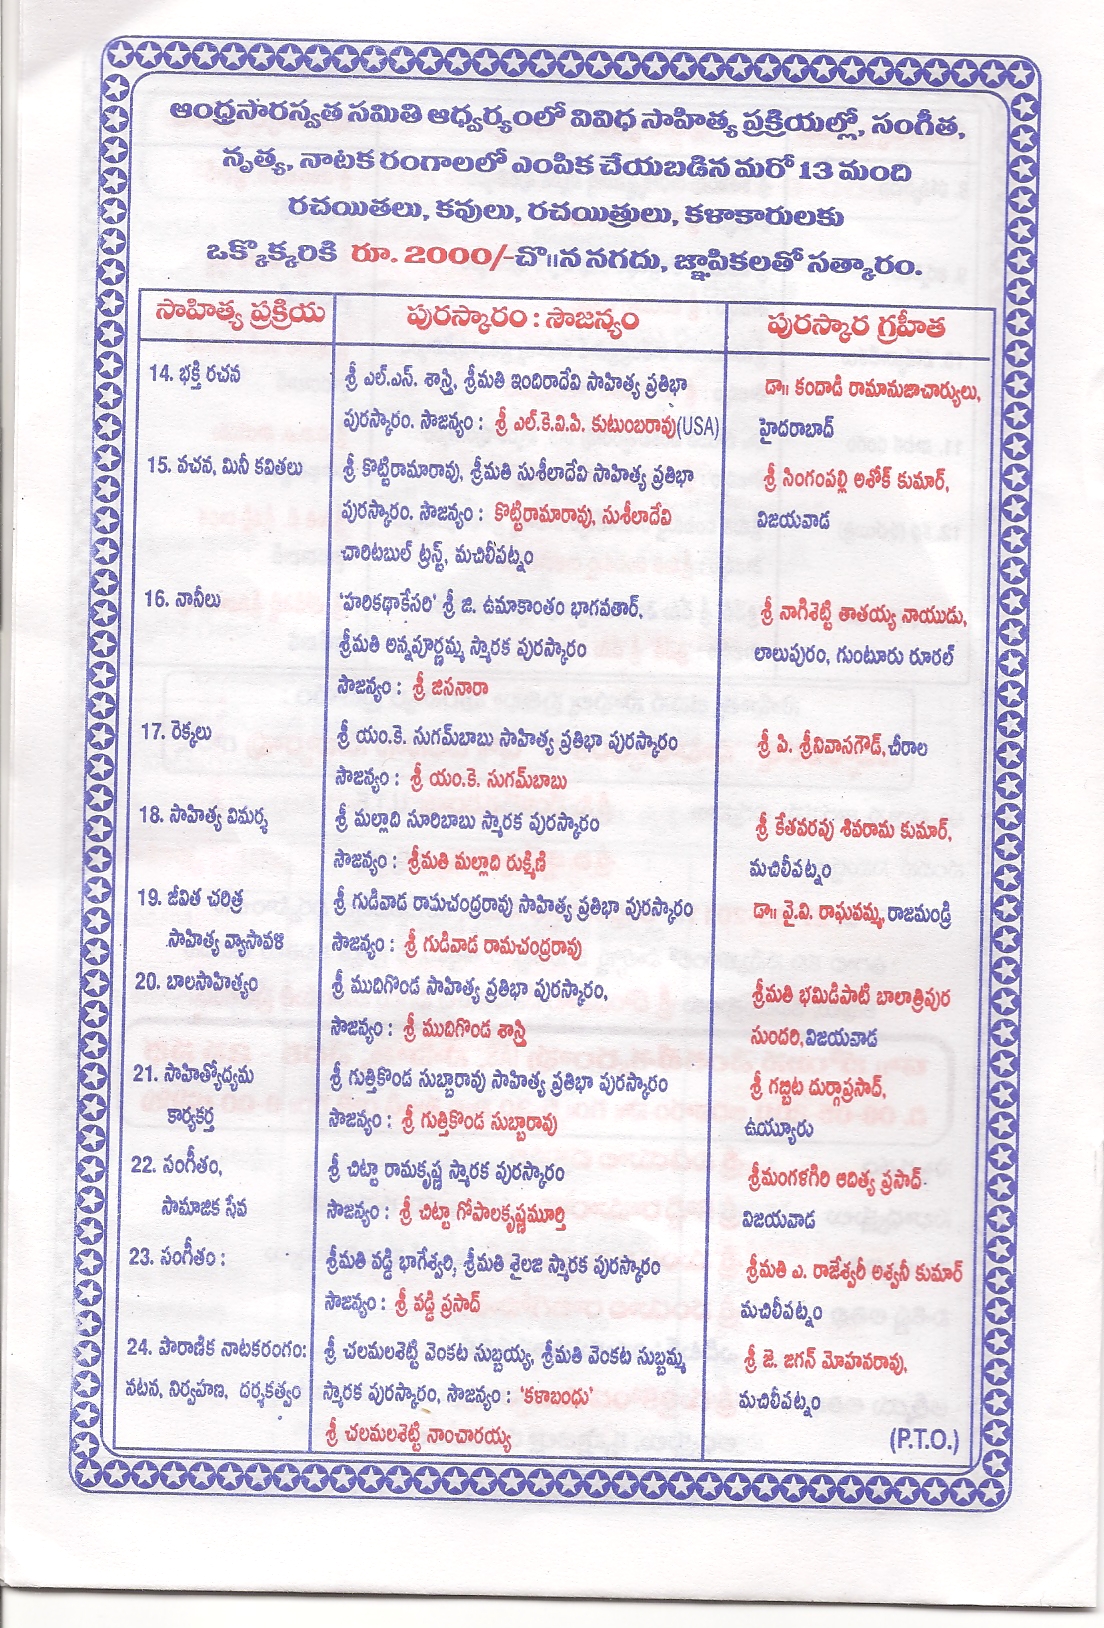 ఆంధ్రసారస్వత సమితి ఆధ్వర్యంలో వివిధ సాహిత్య ప్రక్రియల్లో, సంగీత,
నృత్య, నాటక రంగాలలో ఎంపిక చేయబడిన మరో 13 మంది
రచయితలు, కవులు, రచయిత్రులు, కళాకారులకు
ఒక్కొక్కరికి రూ. 2000/-చొ॥న నగదు, జ్ఞాపికలతో సత్కారం.
సాహిత్య ప్రక్రియ
పురస్కారం : సౌజన్యం
పురస్కార గ్రహీత
14. భక్తి రచన
శ్రీ ఎల్.ఎన్. శాస్త్రి, శ్రీమతి ఇందిరాదేవి సాహిత్య ప్రతిభా
పురస్కారం. సౌజన్యం : శ్రీ ఎల్.కె.వి.పి. కుటుంబరావు(USA)
డా॥ కందాడి రామానుజాచార్యులు,
హైదరాబాద్
15. వచన, మినీ కవితలు
శ్రీ కొట్టిరామారావు, శ్రీమతి సుశీలాదేవి సాహిత్య ప్రతిభా
పురస్కారం. సౌజన్యం : కొట్టిరామారావు, సుశీలాదేవి
చారిటబుల్ ట్రస్ట్, మచిలీపట్నం
శ్రీ సింగంపల్లి అశోక్ కుమార్,
విజయవాడ
16. నానీలు
'హరికథాకేసరి' శ్రీ జి. ఉమాకాంతం భాగవతార్,
శ్రీమతి అన్నపూర్ణమ్మ స్మారక పురస్కారం
సౌజన్యం : శ్రీ జిసనారా
శ్రీ నాగిశెట్టి తాతయ్య నాయుడు,
లాలుపురం, గుంటూరు రూరల్
17. రెక్కలు
శ్రీ యం.కె. సుగమ్‌బాబు సాహిత్య ప్రతిభా పురస్కారం
సౌజన్యం : శ్రీ యం.కె. సుగమ్‌బాబు
శ్రీ పి. శ్రీనివాసగౌడ్, చీరాల
18. సాహిత్య విమర్శ
శ్రీ మల్లాది సూరిబాబు స్మారక పురస్కారం
సౌజన్యం : శ్రీమతి మల్లాది రుక్మిణి
శ్రీ కేతవరపు శివరామ కుమార్,
మచిలీపట్నం
19. జీవిత చరిత్ర
సాహిత్య వ్యాసావళి
శ్రీ గుడివాడ రామచంద్రరావు సాహిత్య ప్రతిభా పురస్కారం
సౌజన్యం : శ్రీ గుడివాడ రామచంద్రరావు
డా॥ వై.వి. రాఘవమ్మ, రాజమండ్రి
20. బాలసాహిత్యం
శ్రీ ముదిగొండ సాహిత్య ప్రతిభా పురస్కారం,
సౌజన్యం : శ్రీ ముదిగొండ శాస్త్రి
శ్రీమతి భమిడిపాటి బాలాత్రిపుర
సుందరి, విజయవాడ
21. సాహిత్యోద్యమ
కార్యకర్త
శ్రీ గుత్తికొండ సుబ్బారావు సాహిత్య ప్రతిభా పురస్కారం
సౌజన్యం : శ్రీ గుత్తికొండ సుబ్బారావు
శ్రీ గబ్బిట దుర్గాప్రసాద్,
ఉయ్యూరు
22. సంగీతం,
సామాజిక సేవ
శ్రీ చిట్టా రామకృష్ణ స్మారక పురస్కారం
సౌజన్యం : శ్రీ చిట్టా గోపాలకృష్ణమూర్తి
శ్రీమంగళగిరి ఆదిత్య ప్రసాద్-
విజయవాడ
23. సంగీతం :
శ్రీమతి వడ్డి భాగేశ్వరి, శ్రీమతి శైలజ స్మారక పురస్కారం
సౌజన్యం : శ్రీ వడ్డి ప్రసాద్
శ్రీమతి ఎ. రాజేశ్వరీ అశ్వనీ కుమార్
మచిలీపట్నం
24. పౌరాణిక నాటకరంగం:
నటన, నిర్వహణ, దర్శకత్వం
శ్రీ చలమలశెట్టి వెంకట సుబ్బయ్య, శ్రీమతి వెంకట సుబ్బమ్మ
స్మారక పురస్కారం, సౌజన్యం : 'కళాబంధు'
శ్రీ చలమలశెట్టి నాంచారయ్య
శ్రీ జె. జగన్ మోహనరావు,
మచిలీపట్నం
(P.T.O.)